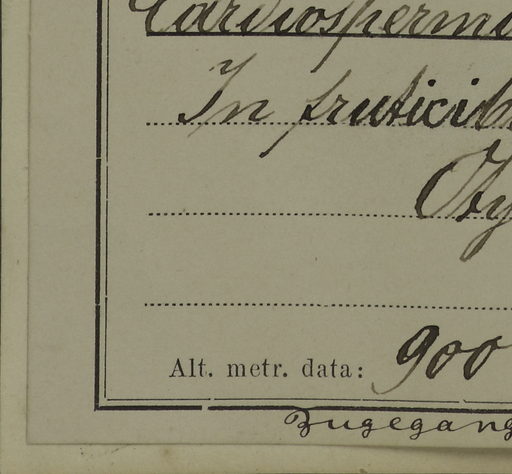 Cardiosperm
In fruticib
Alt. metr. data: 900
Zugegang